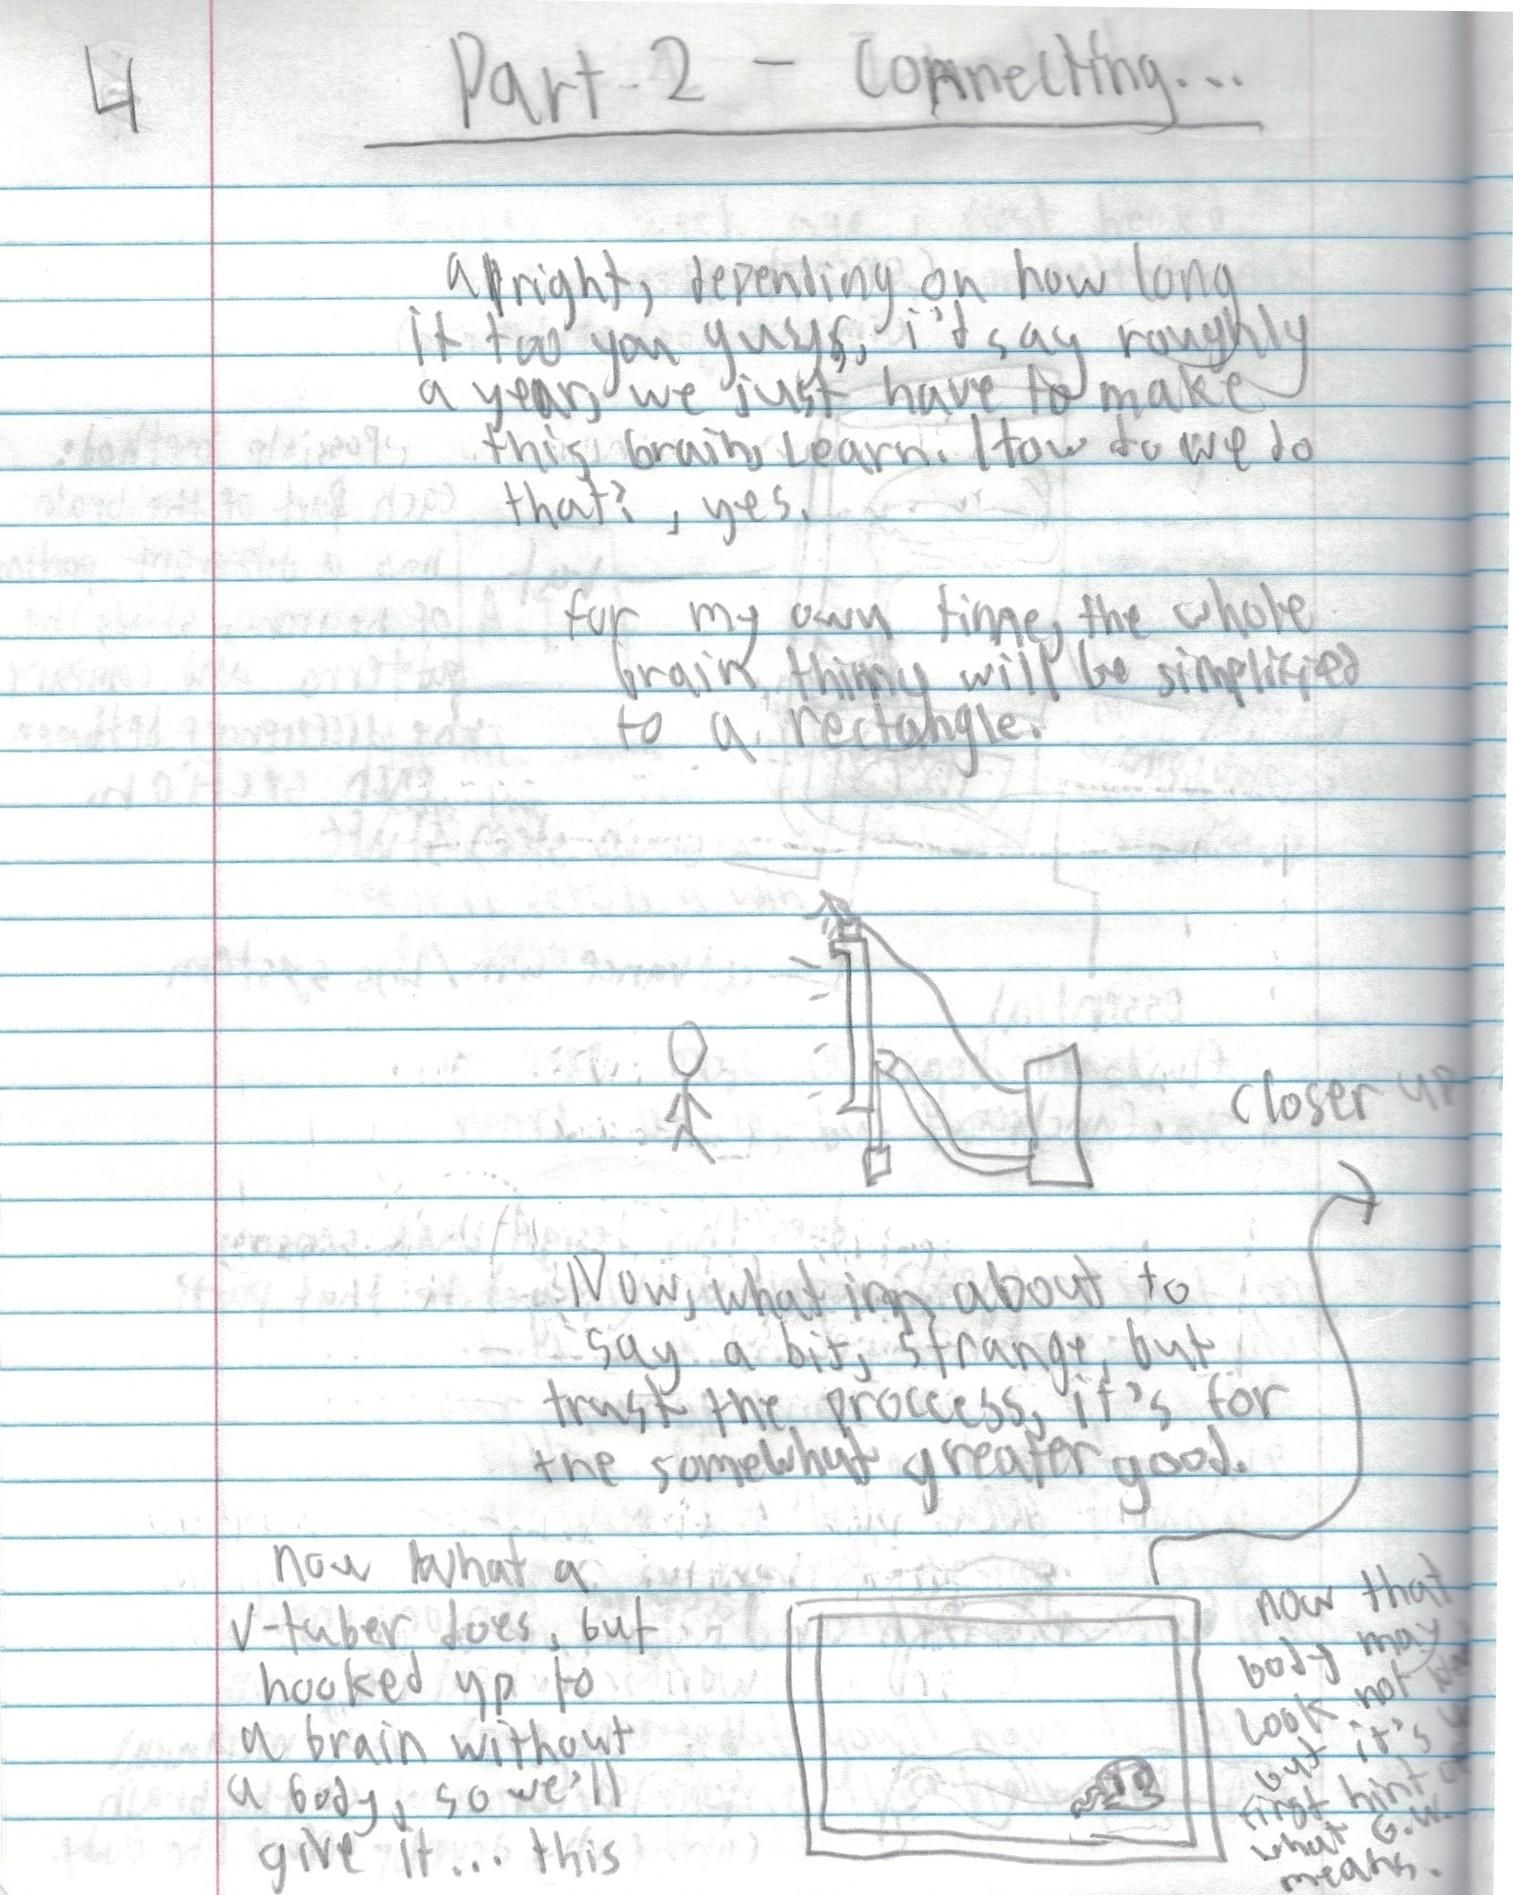 4
Part-2 - Connecting...
Alright, depending on how long
it too you guys, i'd say roughly
a year, we just have to make
this brain, Learn. How do we do
that?, yes.
for my own time, the whole
brain thingy will be simplified
to a rectangle.
closer up
Now, what im about to
say a bit, strange, but
trust the proccess, it's for
the somewhat greater good.
now what a
V-tuber does, but
hooked up to
a brain without
a body, so we'll
give it... this
now that
body may
look not
but it's
first hint
what G.W.
means.